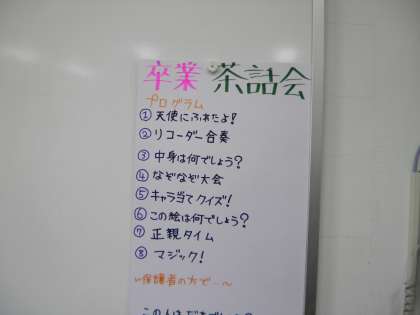 卒業 茶話会
プログラム
① 天使にふれたよ!
② リコーダー合奏
③ 中身は何でしょう?
④ なぞなぞ大会
⑤ キャラ当てクイズ!
⑥ この絵は何でしょう?
⑦ 正親タイム
⑧ マジック!
~保護者の方で…~